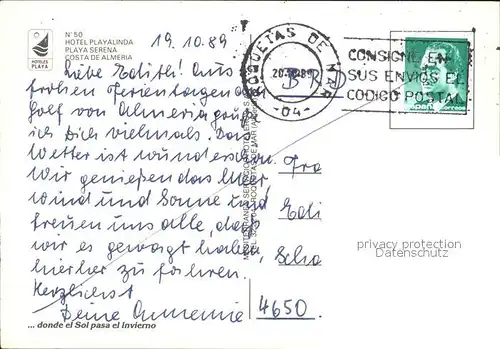 N° 50
HOTEL PLAYALINDA
PLAYA SERENA
COSTA DE ALMERIA
HOTELES
PLAYA
19.10.89
ROQUETAS DE MAR
20.
89
-04-
CONSIGNE EN
SUS ENVIOS EL
CODIGO POSTAL
España
correos
Liebe Edith! Aus
frohen Ferientagen am
Golf von Almeria grüße
ich Dich vielmals. Das
Wetter ist wunderschön.
Wir genießen das Meer,
Wind und Sonne und
freuen uns alle, daß
wir es gewagt haben,
hierher zu fahren.
Herzlichst
Deine Annemie
BRD
Fra
Edi
Scho
4650
privacy protection
Datenschutz
... donde el Sol pasa el invierno